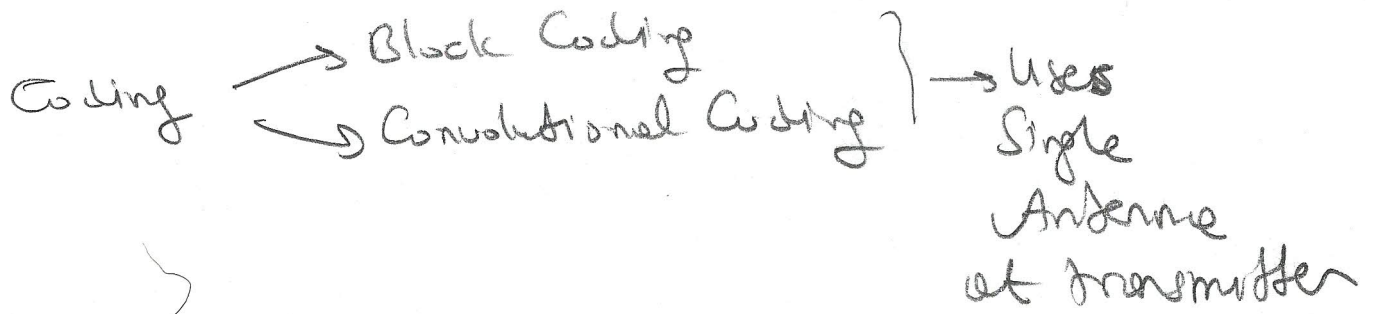 Block Coding
Coding
Convolutional Coding
Uses
Single
Antenna
at transmitter